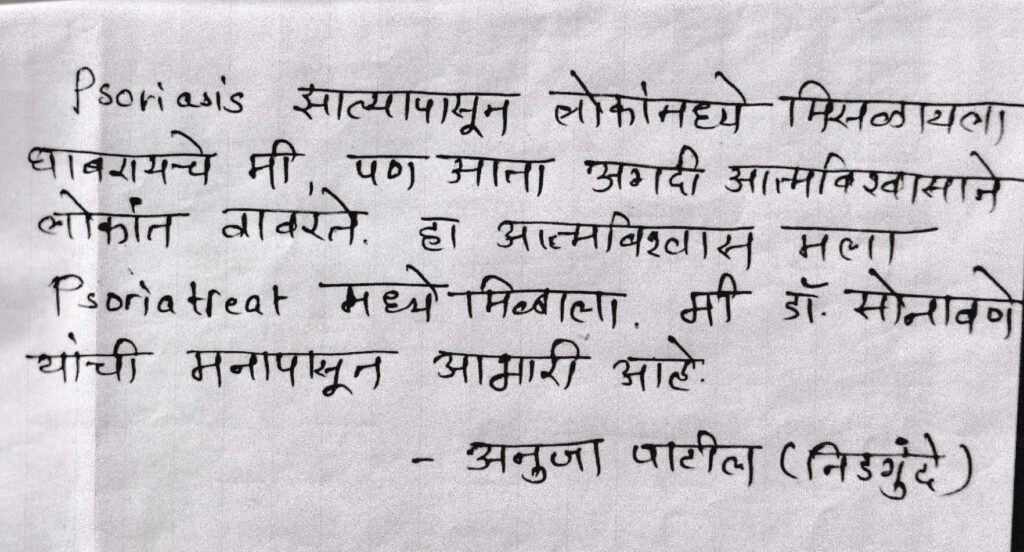 Psoriasis झाल्यापासून लोकांमध्ये मिसळायला
घाबरायचे मी, पण आता अगदी आत्मविश्वासाने
लोकांत वावरते. हा आत्मविश्वास मला
Psoriatreat मध्ये मिळाला. मी डॉ. सोनावणे
यांची मनापासून आभारी आहे.
- अनुजा पाटील (निडगुंदे)